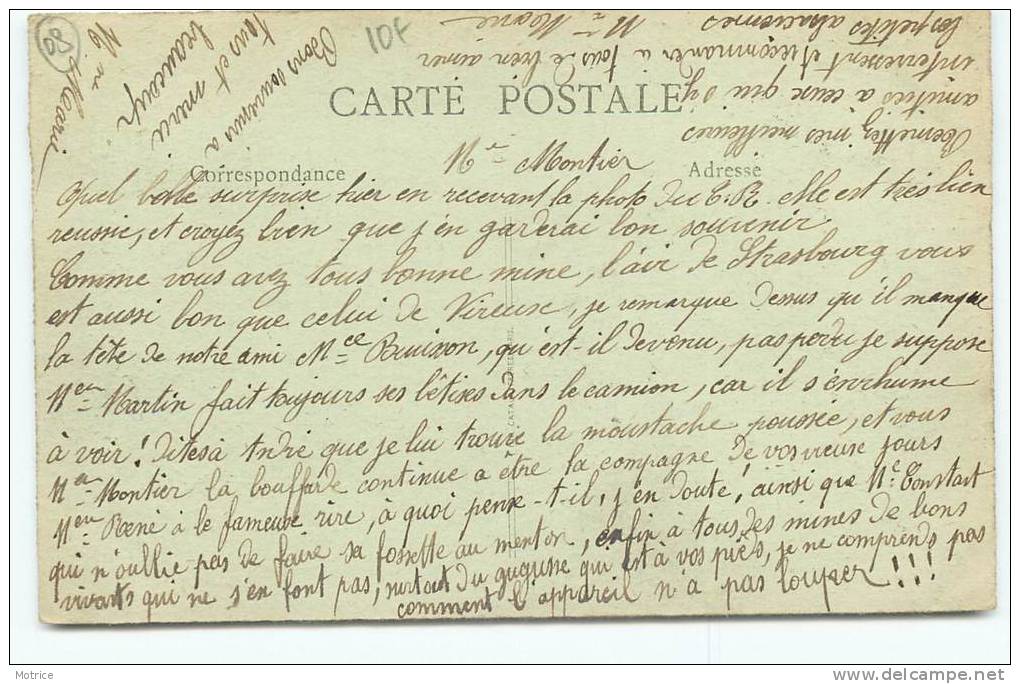 10f
CARTE POSTALE
Correspondance
Adresse
Mr Montier
Quel belle surprise hier en recevant la photo du C.R. Elle est très bien
reussie, et croyez bien que j'en garderai bon souvenir
Comme vous avez tous bonne mine, l'air de Strasbourg vous
est aussi bon que celui de Vireuse, je remarque dessus qu'il manque
la tête de notre ami Mce Buisson, qu'est-il devenu, pas perdu je suppose
Mr Martin fait toujours ses bêtises dans le camion, car il s'enrhume
à voir! Dites à André que je lui trouve la moustache poussée, et vous
Mr Montier la bouffarde continue a être la compagne de vos vieux jours
Mr René à le fameux rire, à quoi pense-t-il, j'en doute! ainsi que Mr Constant
qui n'oublie pas de faire sa fossette au menton, enfin à tous des mines de bons
vivants qui ne s'en font pas, surtout du gugusse qui est à vos pieds, je ne comprends pas
comment l'appareil n'a pas louper!!!
Permettez mes meilleures
amitiés à ceux qui s'y
interressent et recommander à tous de bien aimer
les petites alsaciennes
Mlle Marie
Bons souvenirs a
tous et merci
beaucoup
Marie
50
Motrice
www.delcampe.net